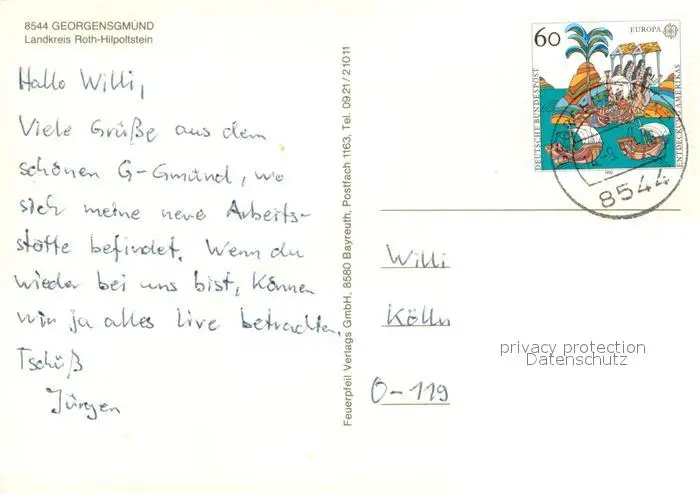 8544 GEORGENSGMÜND
Landkreis Roth-Hilpoltstein
Hallo Willi,
Viele Grüße aus dem
schönen G-Gmünd, wo
sich meine neue Arbeits-
stätte befindet. Wenn du
wieder bei uns bist, können
wir ja alles live betrachten.
Tschüß
Jürgen
Feuerpfeil Verlags GmbH, 8580 Bayreuth, Postfach 1163, Tel. 0921/21011
60
EUROPA
DEUTSCHE BUNDESPOST
ENTDECKUNG AMERIKAS
1992
8544
Willi
Kölln
O-119
privacy protection
Datenschutz